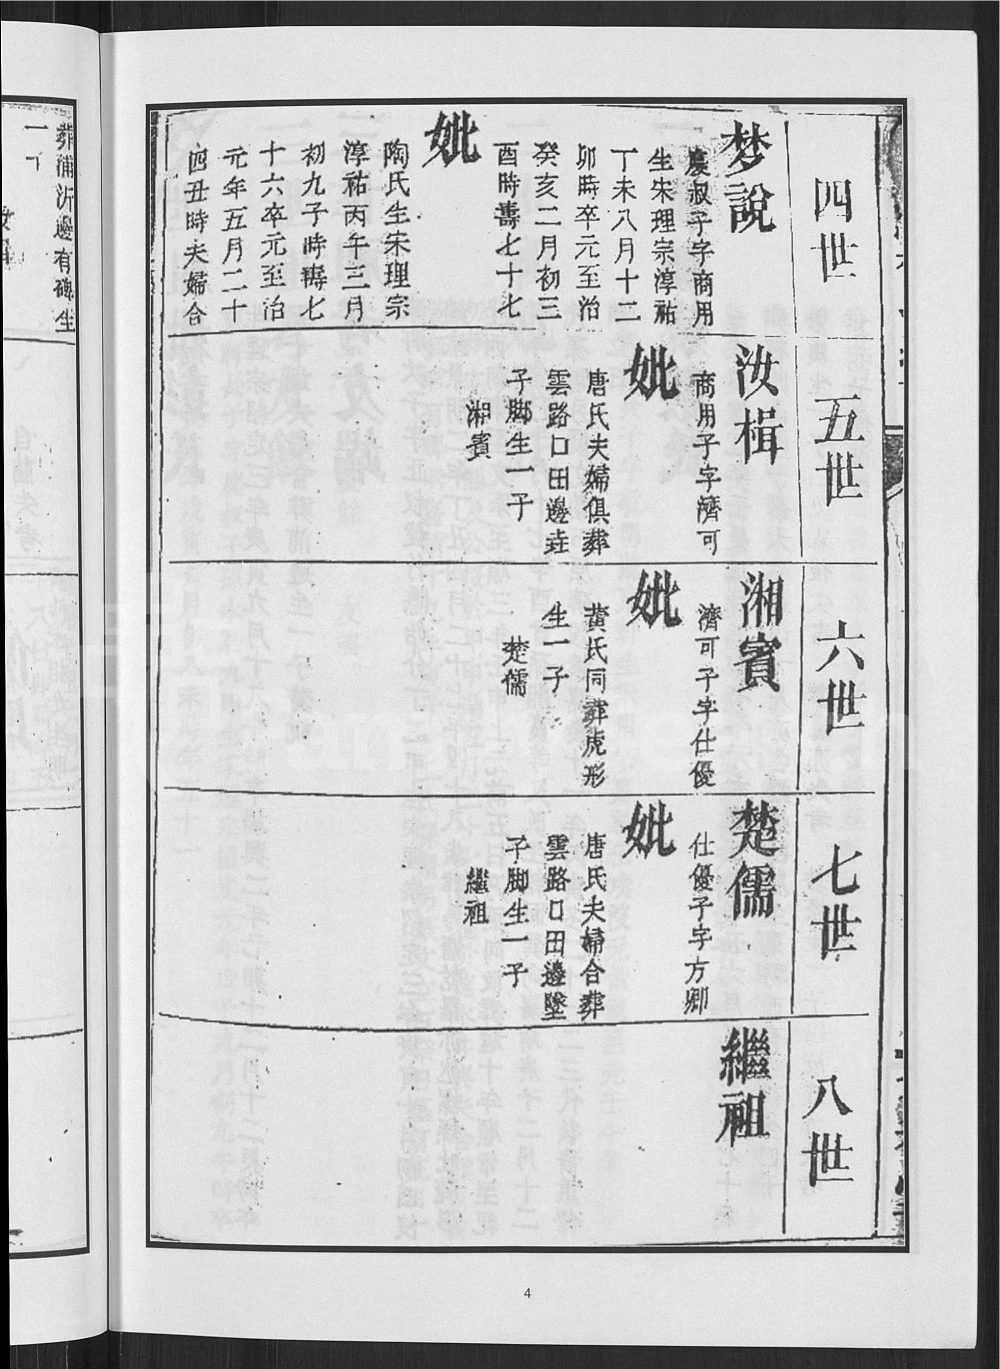 四世
梦說
慶叔子字商用
生宋理宗淳祐
丁未八月十二
卯時卒元至治
癸亥二月初三
酉時壽七十七
妣
陶氏生宋理宗
淳祐丙午三月
初九子時壽七
十六卒元至治
元年五月二十
四丑時夫婦合
五世
汝楫
商用子字濟可
妣
唐氏夫婦俱葬
雲路口田邊
子脚生一子
湘賓
六世
湘賓
濟可子字仕優
妣
黄氏同葬虎形
生一子
楚儒
七世
楚儒
仕優子字方卿
妣
唐氏夫婦合葬
雲路口田邊墜
子脚生一子
繼祖
八世
繼祖
葬浦沂邊有磚生
4